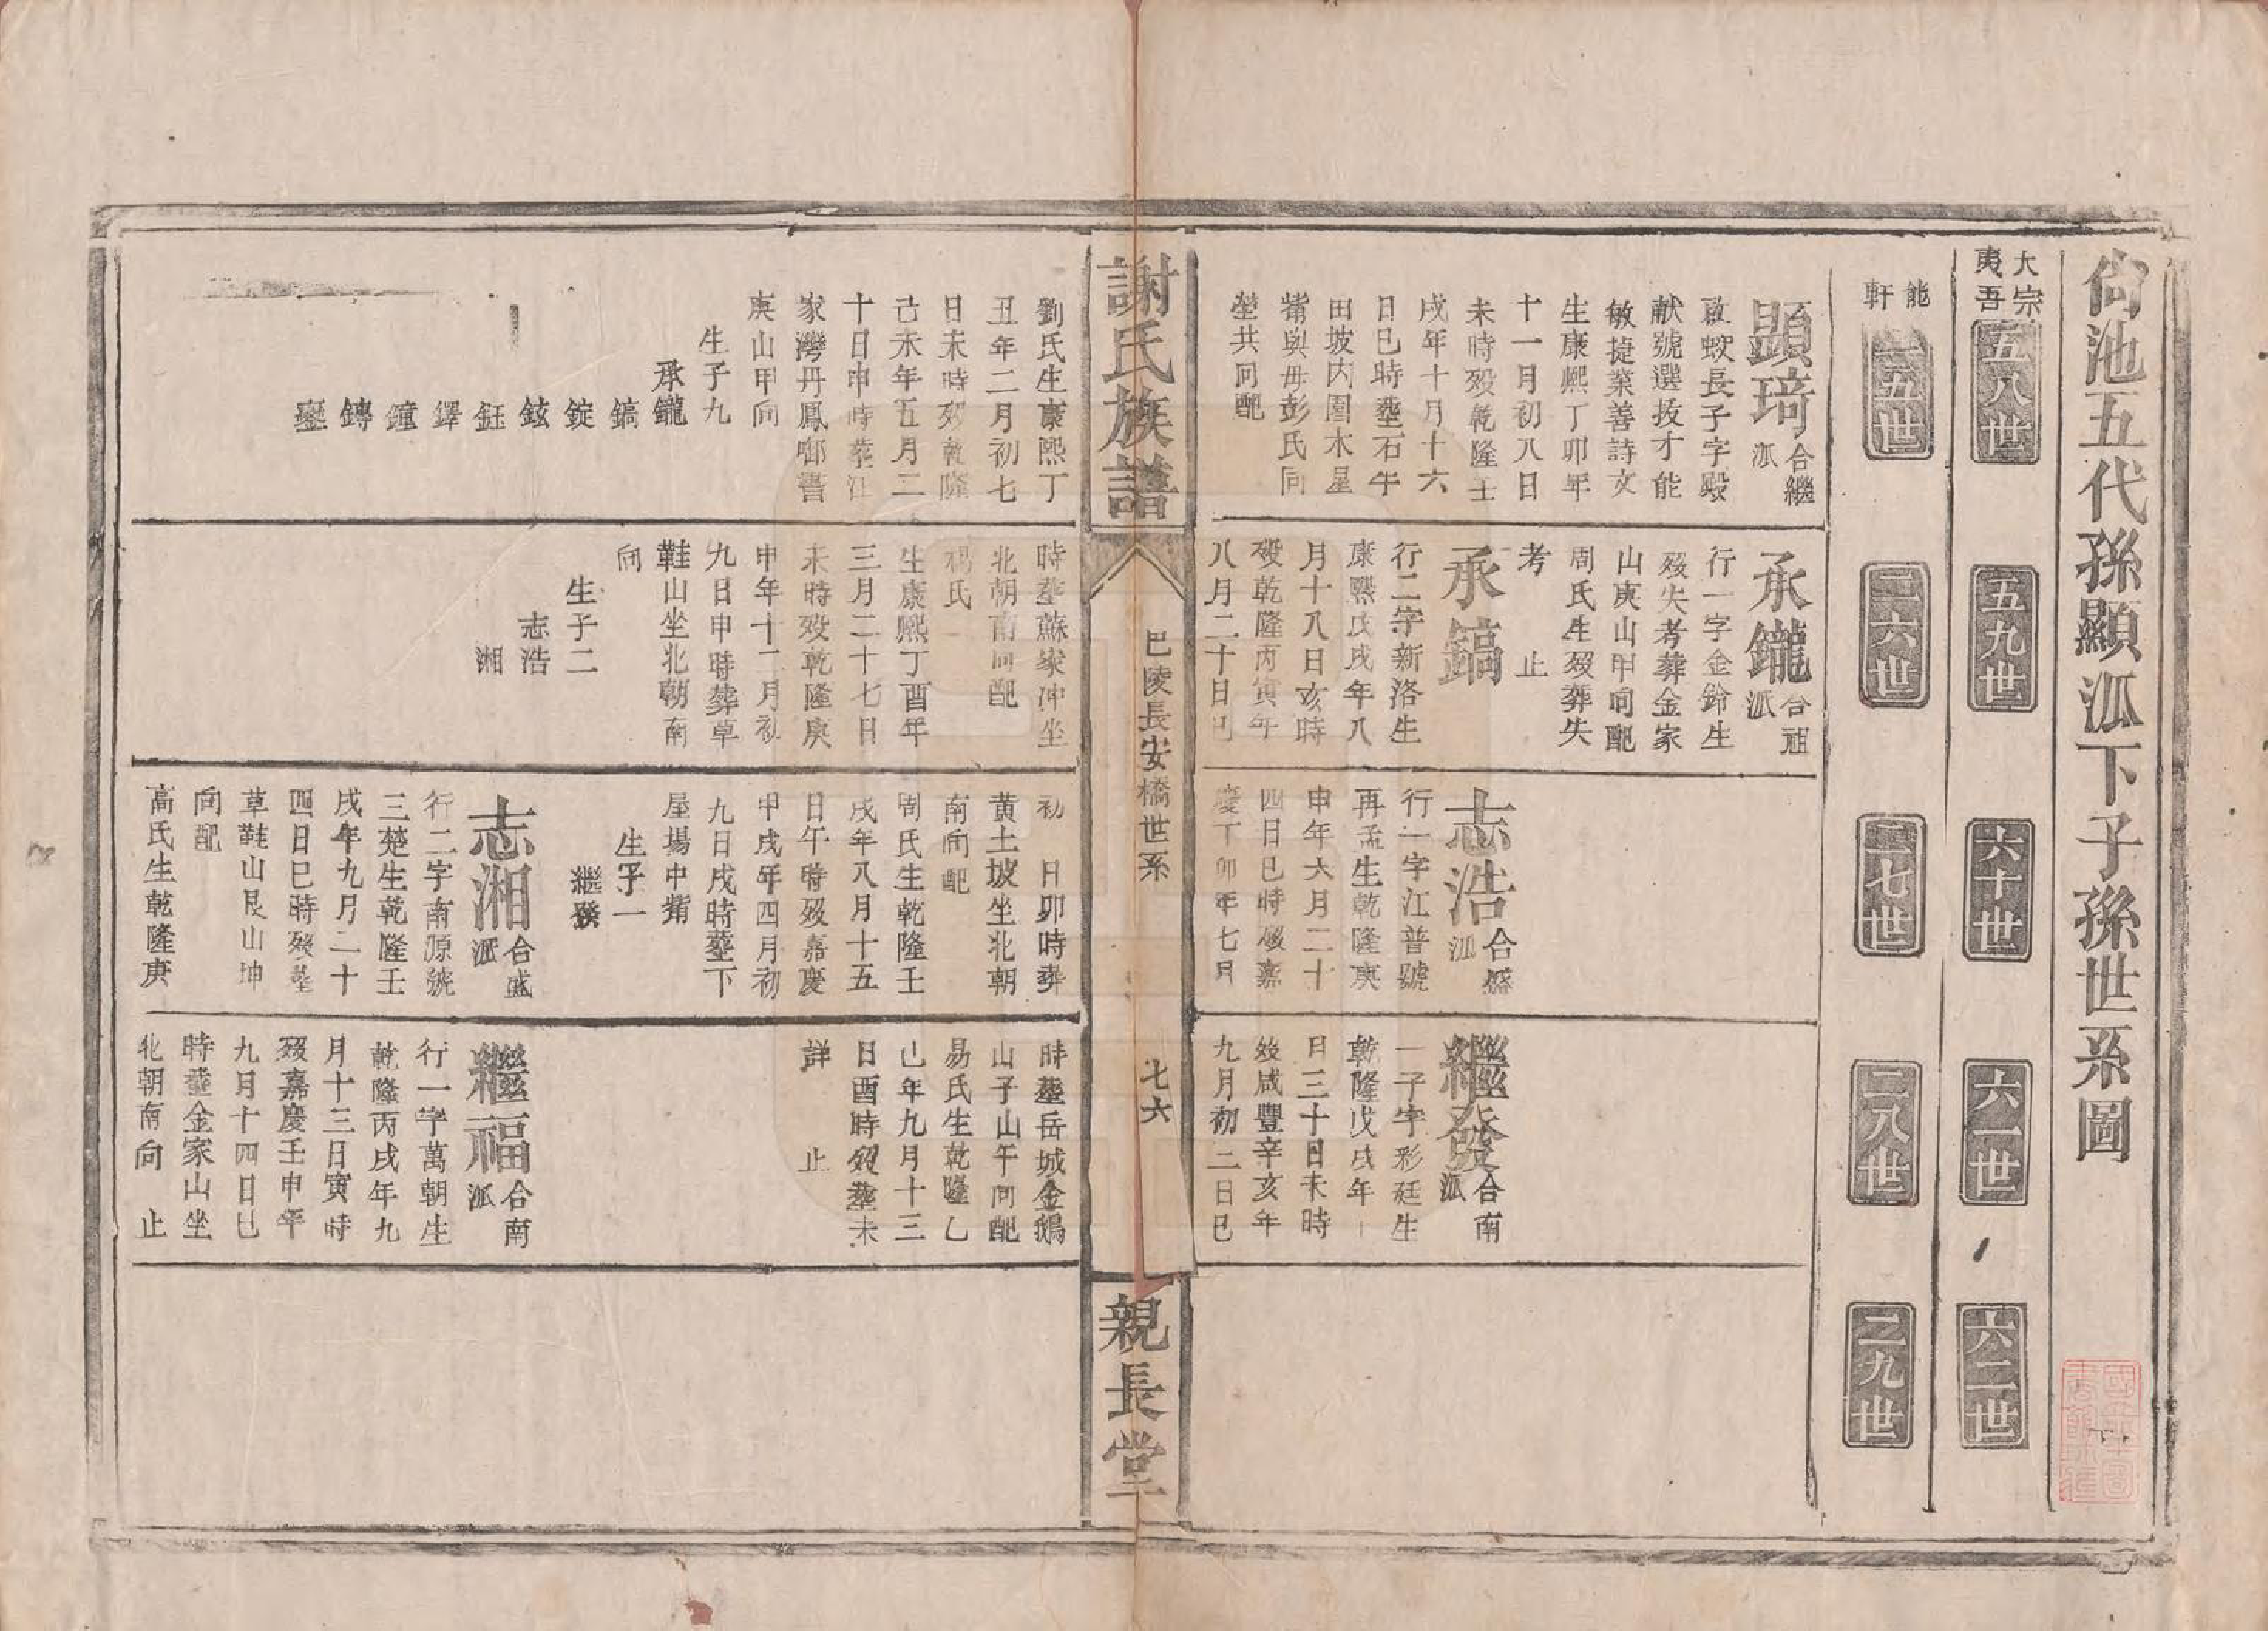 尙池五代孫顯派下子孫世系圖
大宗
夷吾
五八世
五九世
六十世
六一世
六二世
能
軒
二五世
二六世
二七世
二八世
二九世
顯琦
合繼
派
啟蛟長子字殿
献號選拔才能
敏捷業善詩文
生康熙丁卯年
十一月初八日
未時歿乾隆壬
戌年十月十六
日巳時塟石牛
田坡内園木星
觜與毋彭氏同
塋共向配
承鑨
合祖
派
行一字金鈴生
歿失考葬金家
山庚山甲向配
周氏生歿葬失
考 止
承鎬
行二字新洛生
康熙戊戌年八
月十八日亥時
歿乾隆丙寅年
八月二十日巳
志浩
合盛
派
行一字江普號
再孟生乾隆庚
申年六月二十
四日巳時歿嘉
慶丁卯年七月
繼發
合南
派
一子字彩廷生
乾隆戊戌年十
日三十日未時
歿咸豐辛亥年
九月初二日巳
謝氏族譜
巴陵長安橋世系
七六
親長堂
劉氏生康熙丁
丑年二月初七
日未時歿乾隆
己未年五月二
十日申時塟江
家灣丹鳳啣書
庚山甲向
生子九
承鑨
鎬
錠
鉉
鈺
鐸
鐘
鏄
時塟蘇家冲坐
北朝南向配
楊氏
生康熙丁酉年
三月二十七日
未時歿乾隆庚
申年十二月初
九日申時葬草
鞋山坐北朝南
向
生子二
志浩
湘
初 日卯時葬
黃土坡坐北朝
南向配
周氏生乾隆壬
戌年八月十五
日午時歿嘉慶
甲戌年四月初
九日戌時塟下
屋場中觜
生子一
繼發
志湘
合盛
派
行二字南源號
三楚生乾隆壬
戌年九月二十
四日巳時歿塟
草鞋山艮山坤
向配
高氏生乾隆庚
時塟岳城金鵝
山子山午向配
易氏生乾隆乙
巳年九月十三
日酉時歿塟未
詳 止
繼福
合南
派
行一字萬朝生
乾隆丙戌年九
月十三日寅時
歿嘉慶壬申年
九月十四日巳
時塟金家山坐
北朝南向 止